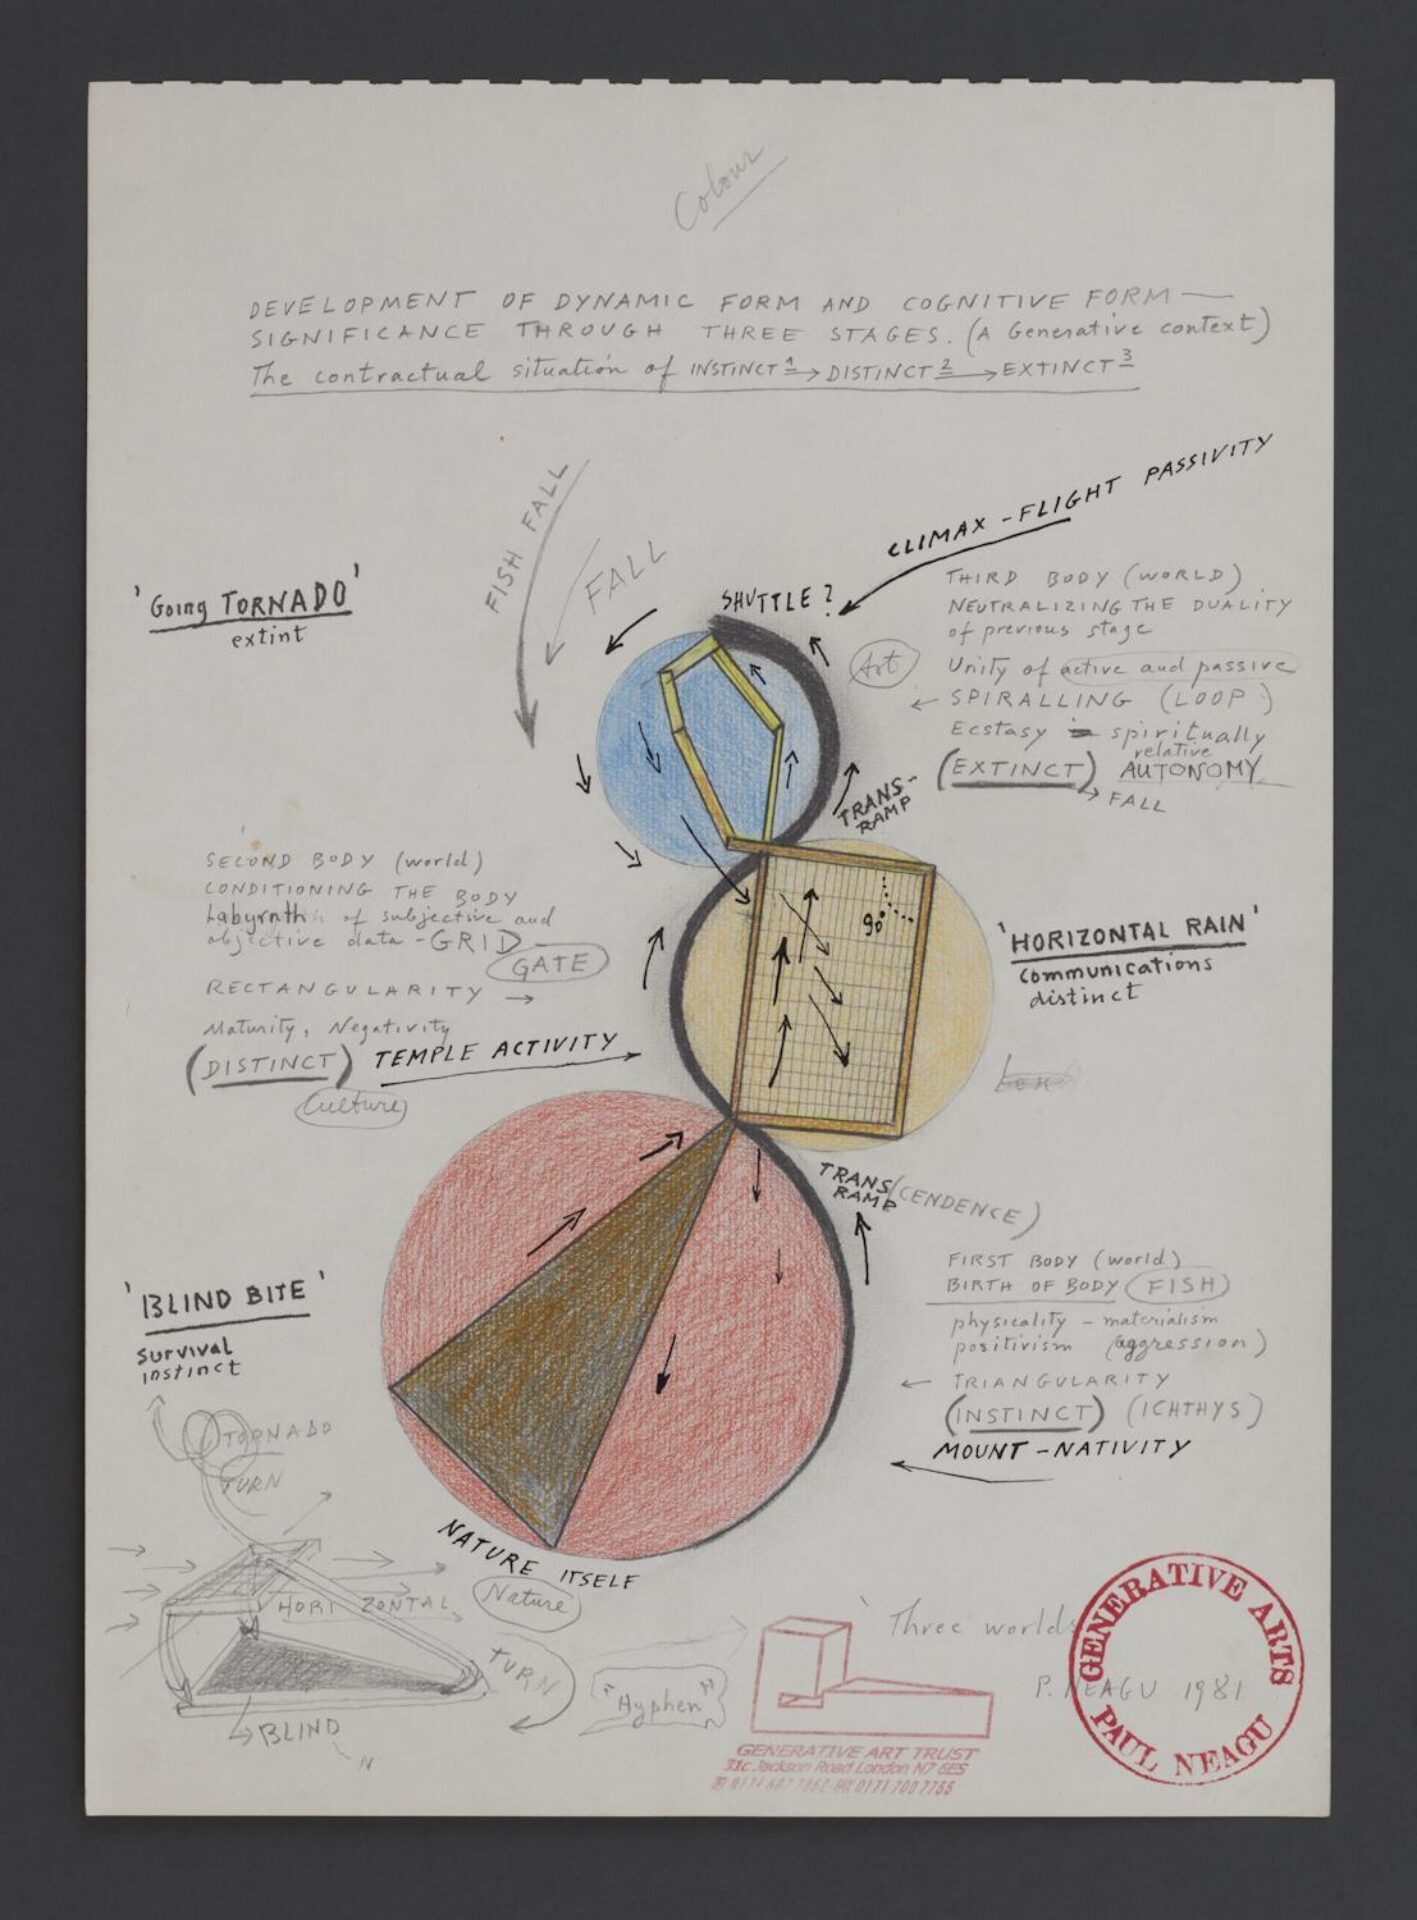 Colour
DEVELOPMENT OF DYNAMIC FORM AND COGNITIVE FORM —
SIGNIFICANCE THROUGH THREE STAGES. (A Generative context)
The contractual situation of INSTINCT 1 → DISTINCT 2 → EXTINCT 3
FISH FALL
FALL
CLIMAX - FLIGHT PASSIVITY
SHUTTLE?
'Going TORNADO'
extint
THIRD BODY (WORLD)
NEUTRALIZING THE DUALITY
of previous stage
Art
Unity of active and passive
← SPIRALLING (LOOP)
Ecstasy spiritually
relative
(EXTINCT) AUTONOMY
→ FALL
TRANS-
RAMP
SECOND BODY (world)
CONDITIONING THE BODY
Labyrnth of subjective and
objective data - GRID
GATE
RECTANGULARITY →
Maturity, Negativity
(DISTINCT) TEMPLE ACTIVITY
Culture
90°
'HORIZONTAL RAIN'
communications
distinct
TRANS(CENDENCE)
RAMP
FIRST BODY (world)
BIRTH OF BODY (FISH)
physicality - materialism
positivism (aggression)
← TRIANGULARITY
(INSTINCT) (ICHTHYS)
MOUNT - NATIVITY
'BLIND BITE'
survival
instinct
TORNADO
TURN
NATURE ITSELF
Nature
HORIZONTAL
TURN
BLIND
N
"Hyphen"
'Three worlds
P. NEAGU 1981
GENERATIVE ARTS
PAUL NEAGU
GENERATIVE ART TRUST
31c Jackson Road London N7 6ES